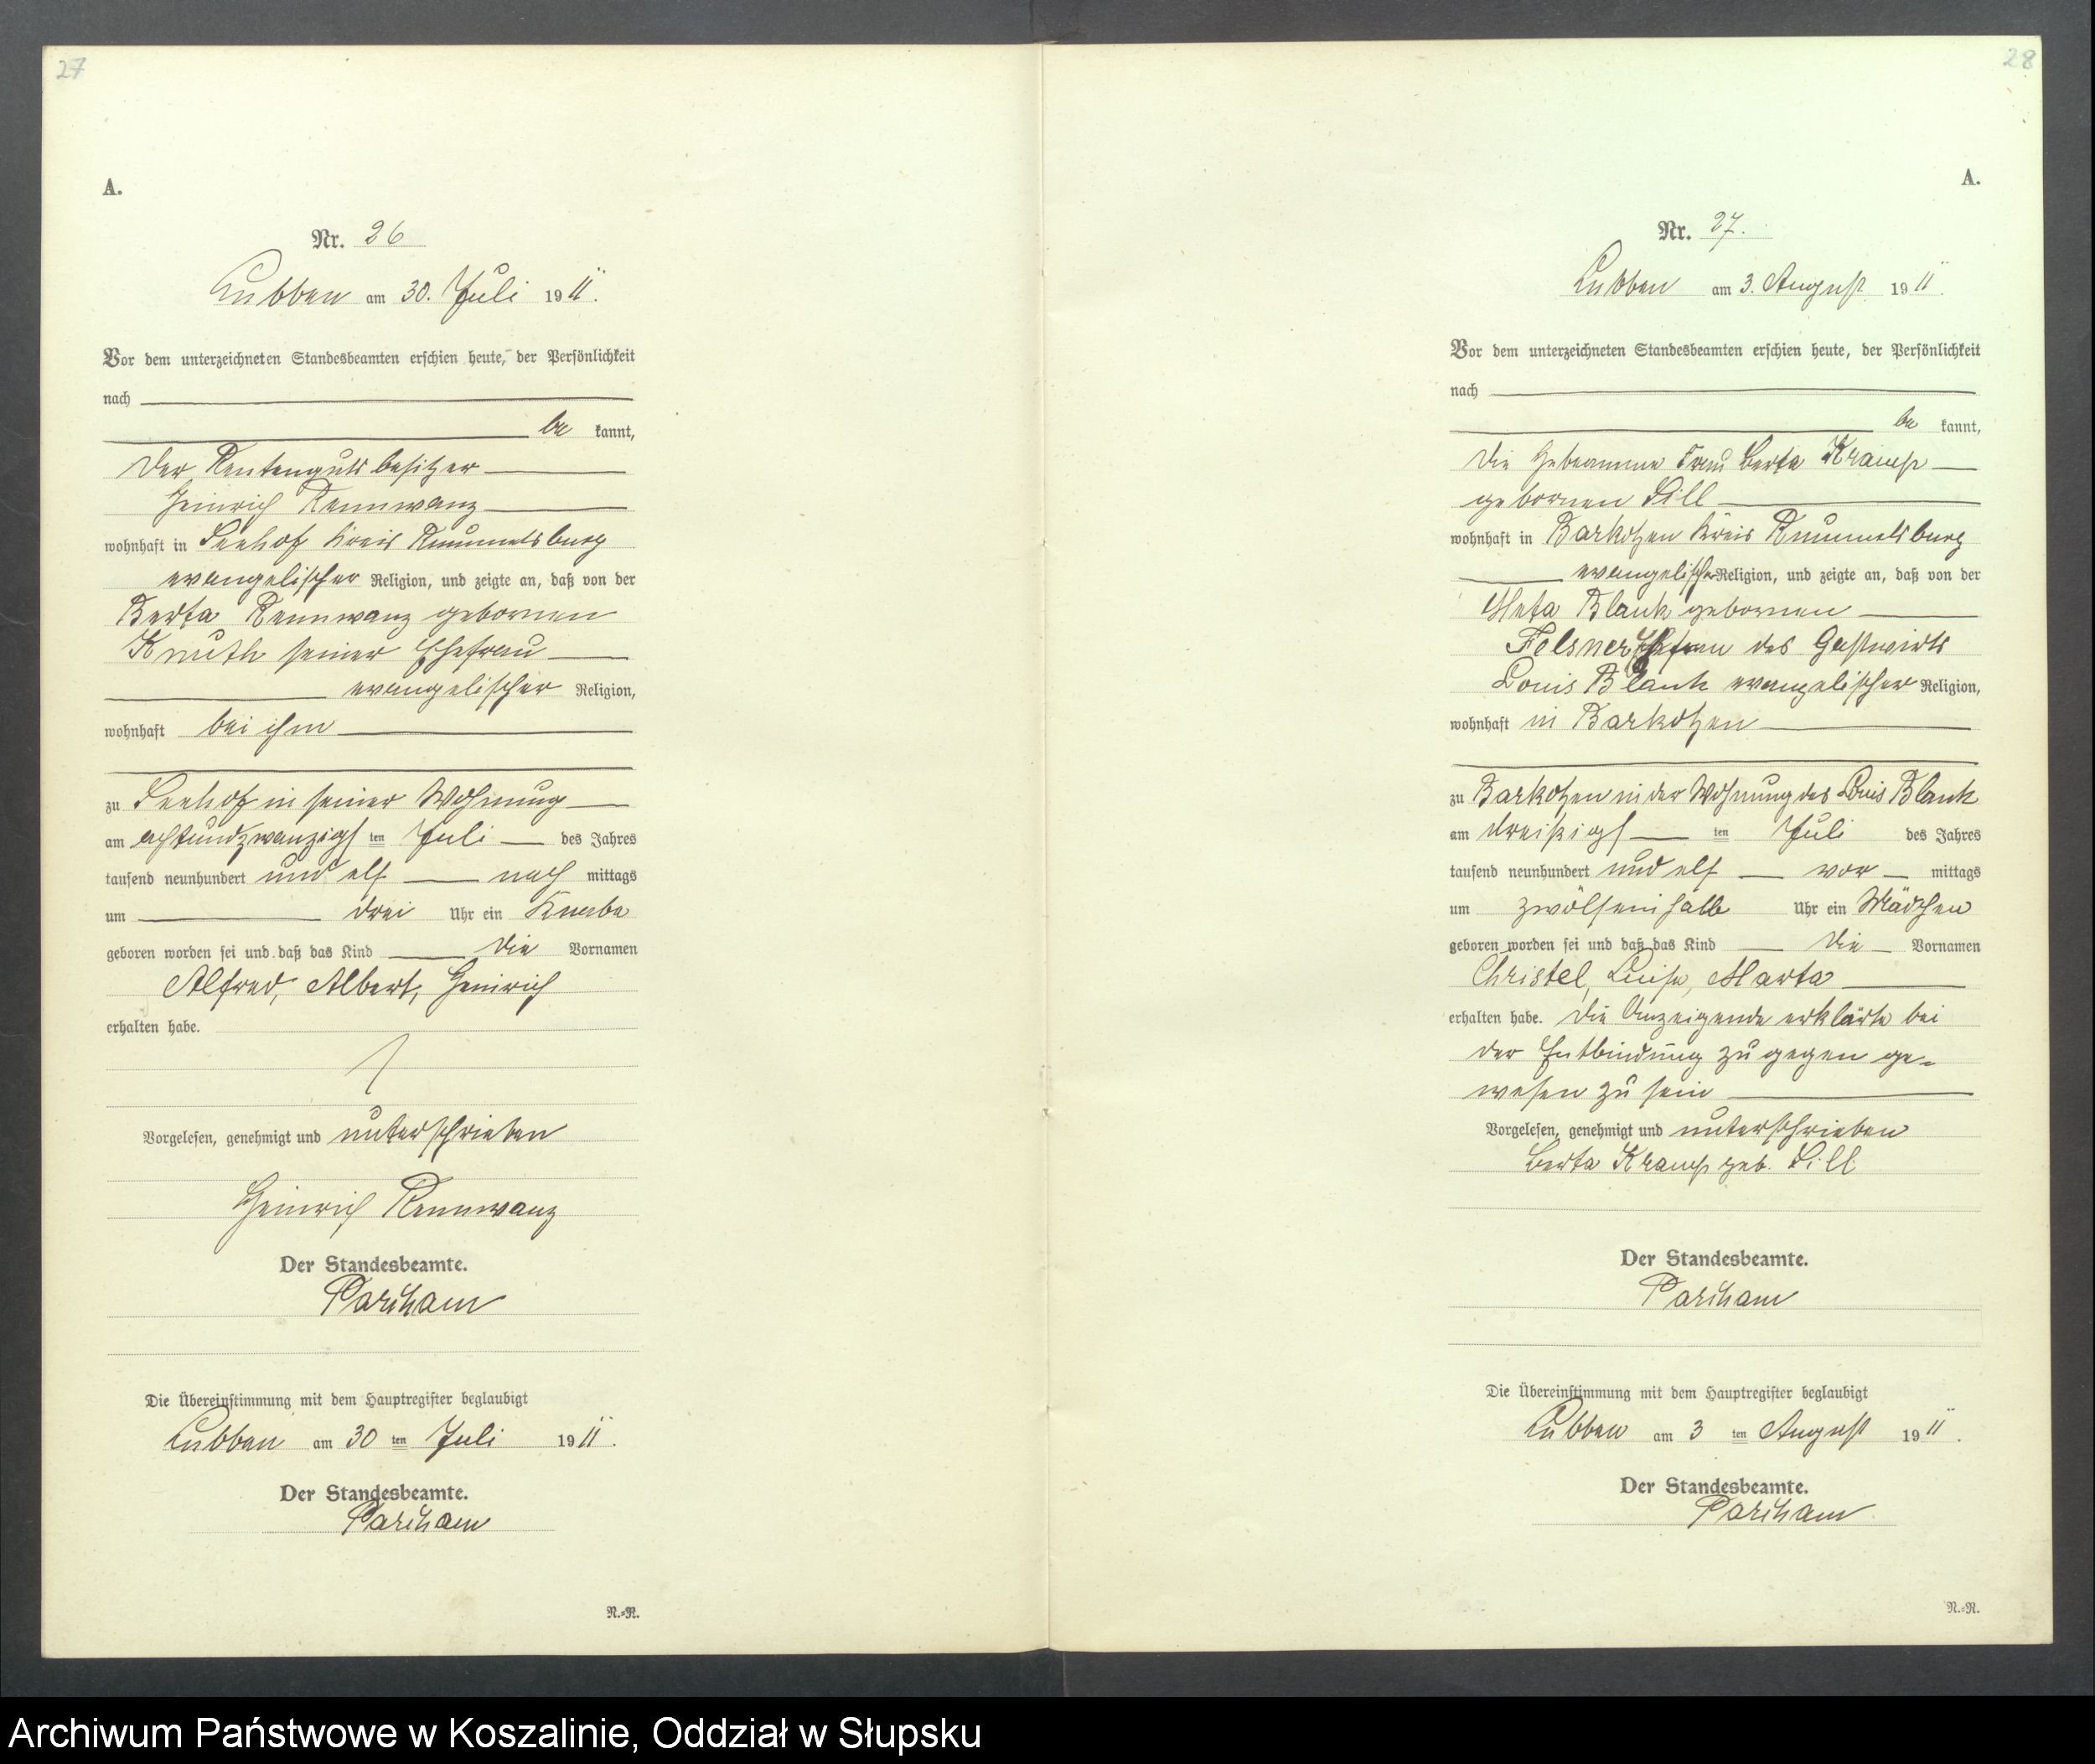 27
A.
Nr. 26
Lubben am 30. Juli 1911.
Vor dem unterzeichneten Standesbeamten erschien heute, der Persönlichkeit
nach
be kannt,
der Rentengutsbesitzer
Heinrich Rennwanz
wohnhaft in Seehof Kreis Rummelsburg
evangelischer Religion, und zeigte an, daß von der
Berta Rennwanz gebornen
Knuth seiner Ehefrau
evangelischer Religion,
wohnhaft bei ihm
zu Seehof in seiner Wohnung
am achtundzwanzigsten Juli des Jahres
tausend neunhundert und elf nach mittags
um drei Uhr ein Knabe
geboren worden sei und daß das Kind die Vornamen
Alfred, Albert, Heinrich
erhalten habe.
Vorgelesen, genehmigt und unterschrieben
Heinrich Rennwanz
Der Standesbeamte.
Die Übereinstimmung mit dem Hauptregister beglaubigt
Lubben am 30 ten Juli 1911.
Der Standesbeamte.
R.=R.
28
A.
Nr. 27.
Lubben am 3. August 1911.
Vor dem unterzeichneten Standesbeamten erschien heute, der Persönlichkeit
nach
be kannt,
die Hebeamme Frau Berta Kramp
gebornen Sill
wohnhaft in Barkotzen Kreis Rummelsburg
evangelischer Religion, und zeigte an, daß von der
Meta Blank gebornen
Felsner Ehefrau des Gastwirts
Louis Blank evangelischer Religion,
wohnhaft in Barkotzen
zu Barkotzen in der Wohnung des Louis Blank
am dreißigsten Juli des Jahres
tausend neunhundert und elf vor mittags
um zwölfeinhalb Uhr ein Mädchen
geboren worden sei und daß das Kind die Vornamen
Christel, Luise, Marta
erhalten habe. Die Anzeigende erklärte bei
der Entbindung zugegen ge-
wesen zu sein
Vorgelesen, genehmigt und unterschrieben
Berta Kramp geb. Sill
Der Standesbeamte.
Die Übereinstimmung mit dem Hauptregister beglaubigt
Lubben am 3 ten August 1911.
Der Standesbeamte.
R.=R.
Archiwum Państwowe w Koszalinie, Oddział w Słupsku